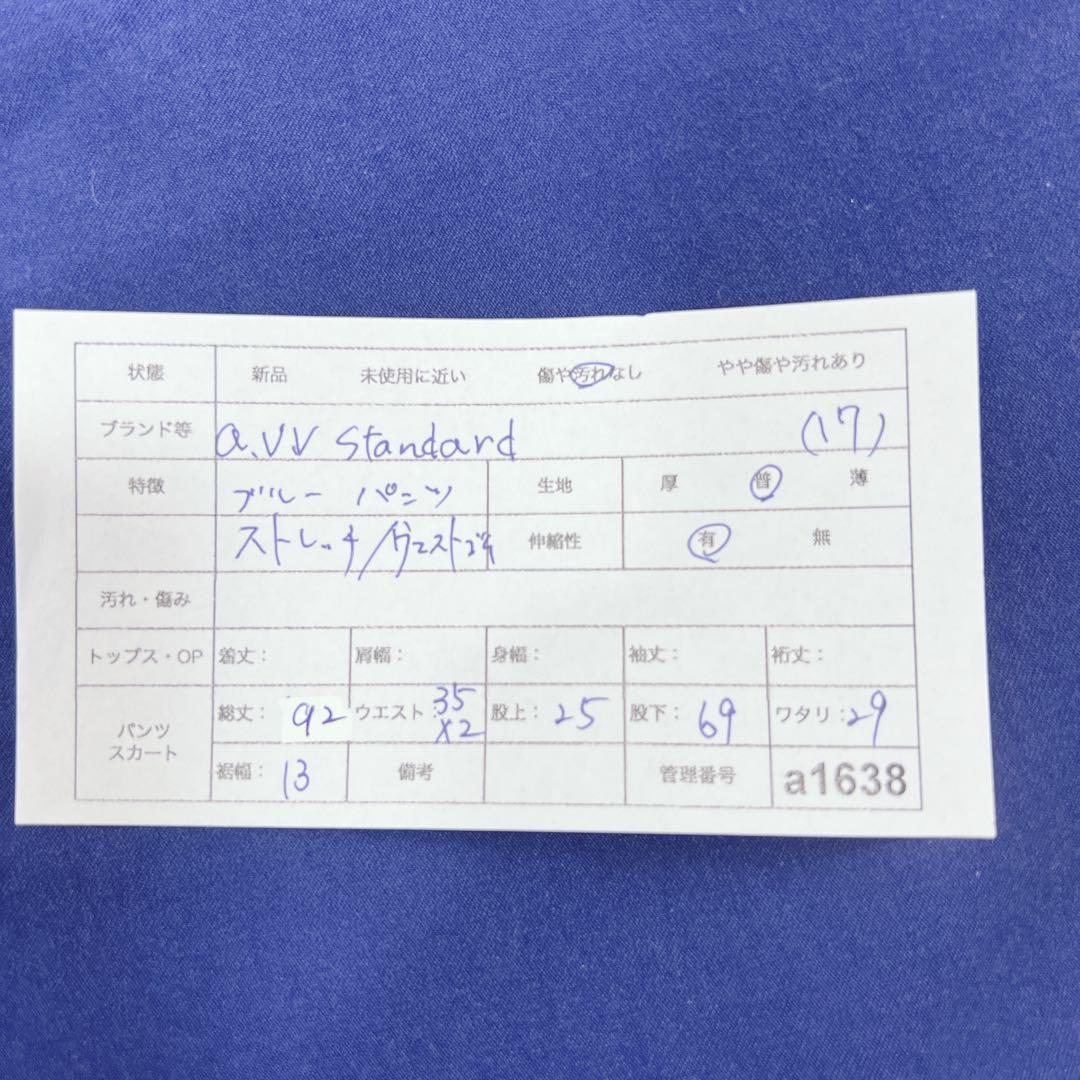 状態 新品 未使用に近い 傷や汚れなし やや傷や汚れあり
ブランド等 a.vv standard (17)
特徴 ブルー パンツ 生地 厚 普 薄
ストレッチ/ウエストゴム 伸縮性 有 無
汚れ・傷み
トップス・OP 着丈: 肩幅: 身幅: 袖丈: 裄丈:
パンツ スカート 総丈: 92 ウエスト: 35 x2 股上: 25 股下: 69 ワタリ: 29
裾幅: 13 備考 管理番号 a1638